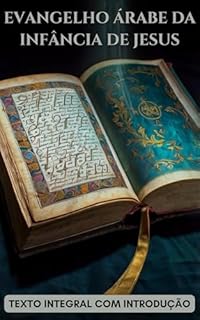 EVANGELHO ÁRABE DA
INFÂNCIA DE JESUS
TEXTO INTEGRAL COM INTRODUÇÃO